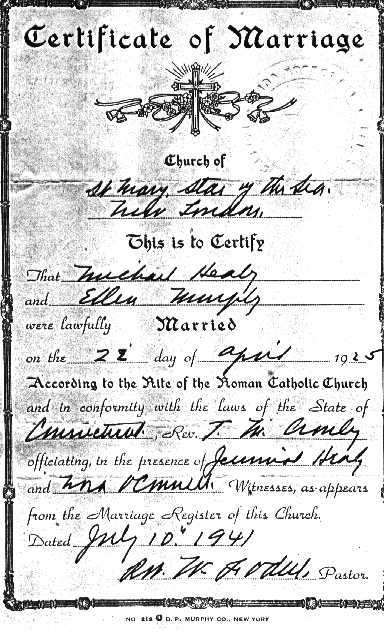 Certificate of Marriage
Church of
St Mary, Star of the Sea.
New London.
This is to Certify
That Michael Healy
and Ellen Murphy
were lawfully Married
on the 22 day of April 1925
According to the Rite of the Roman Catholic Church
and in conformity with the laws of the State of
Connecticut, Rev. T. M. Crowley
officiating, in the presence of Jeremiah Healy
and Nora O'Connell Witnesses, as appears
from the Marriage Register of this Church.
Dated July 10" 1941
Rev W. Pastor.
NO 212 D. P. MURPHY CO., NEW YORK